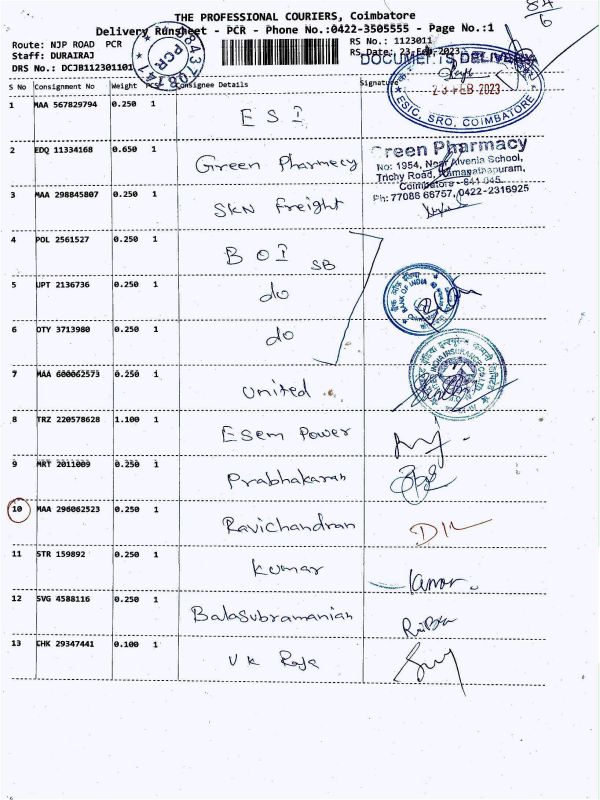 THE PROFESSIONAL COURIERS, Coimbatore
Delivery Runsheet - PCR - Phone No.:0422-3505555 - Page No.:1
84/6
Route: NJP ROAD PCR
RS No.: 1123011
Staff: DURAIRAJ
RS Date: 23-Feb-2023
DRS No.: DCJB112301101
PCR
DOCUMENTS DELIVERY
23 FEB 2023
ESIC, SRO, COIMBATORE
S No Consignment No Weight PCS Consignee Details Signature
1 MAA 567829794 0.250 1 ESI
2 EDQ 11334168 0.650 1 Green Pharmecy
Green Pharmacy
No: 1954, Near Alvenia School,
Trichy Road, Ramanathapuram,
Coimbatore - 641 045.
Ph: 77086 66757, 0422-2316925
3 MAA 298845807 0.250 1 SKN freight
4 POL 2561527 0.250 1 BOI SB
5 UPT 2136736 0.250 1 do
BANK OF INDIA
6 OTY 3713980 0.250 1 do
7 MAA 600062573 0.250 1 United
INDIA INSURANCE CO. LTD.
8 TRZ 220578628 1.100 1 Esem Power
9 MRT 2011009 0.250 1 Prabhakaran
10 MAA 296062523 0.250 1 Ravichandran
11 STR 159892 0.250 1 Kumar
12 SVG 4588116 0.250 1 Balasubramanian
13 CHK 29347441 0.100 1 VK Raja